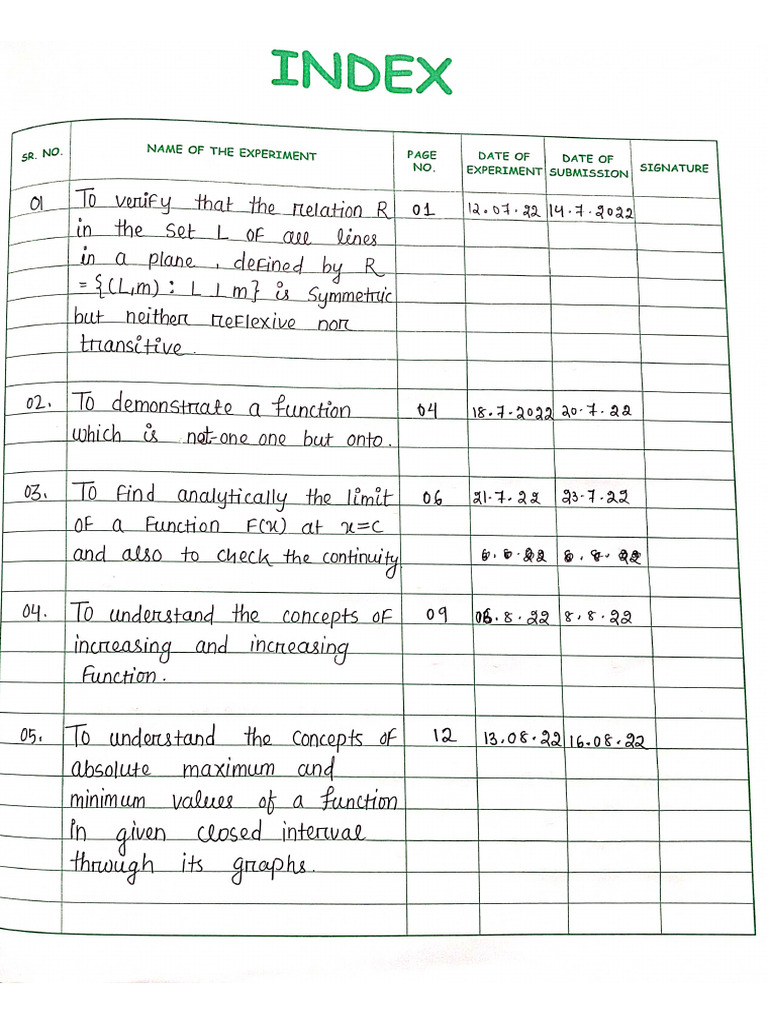 INDEX
SR. NO. NAME OF THE EXPERIMENT PAGE NO. DATE OF EXPERIMENT DATE OF SUBMISSION SIGNATURE
01 To verify that the relation R 01 12.07.22 14.7.2022
in the set L of all lines
in a plane, defined by R
= {(L,m) : L ⊥ m} is symmetric
but neither reflexive nor
transitive.
02. To demonstrate a function 04 18.7.2022 20.7.22
which is not-one one but onto.
03. To find analytically the limit 06 21.7.22 23.7.22
of a function F(x) at x=c
and also to check the continuity 6.8.22 8.8.22
04. To understand the concepts of 09 06.8.22 8.8.22
increasing and increasing
function.
05. To understand the concepts of 12 13.08.22 16.08.22
absolute maximum and
minimum values of a function
in given closed interval
through its graphs.